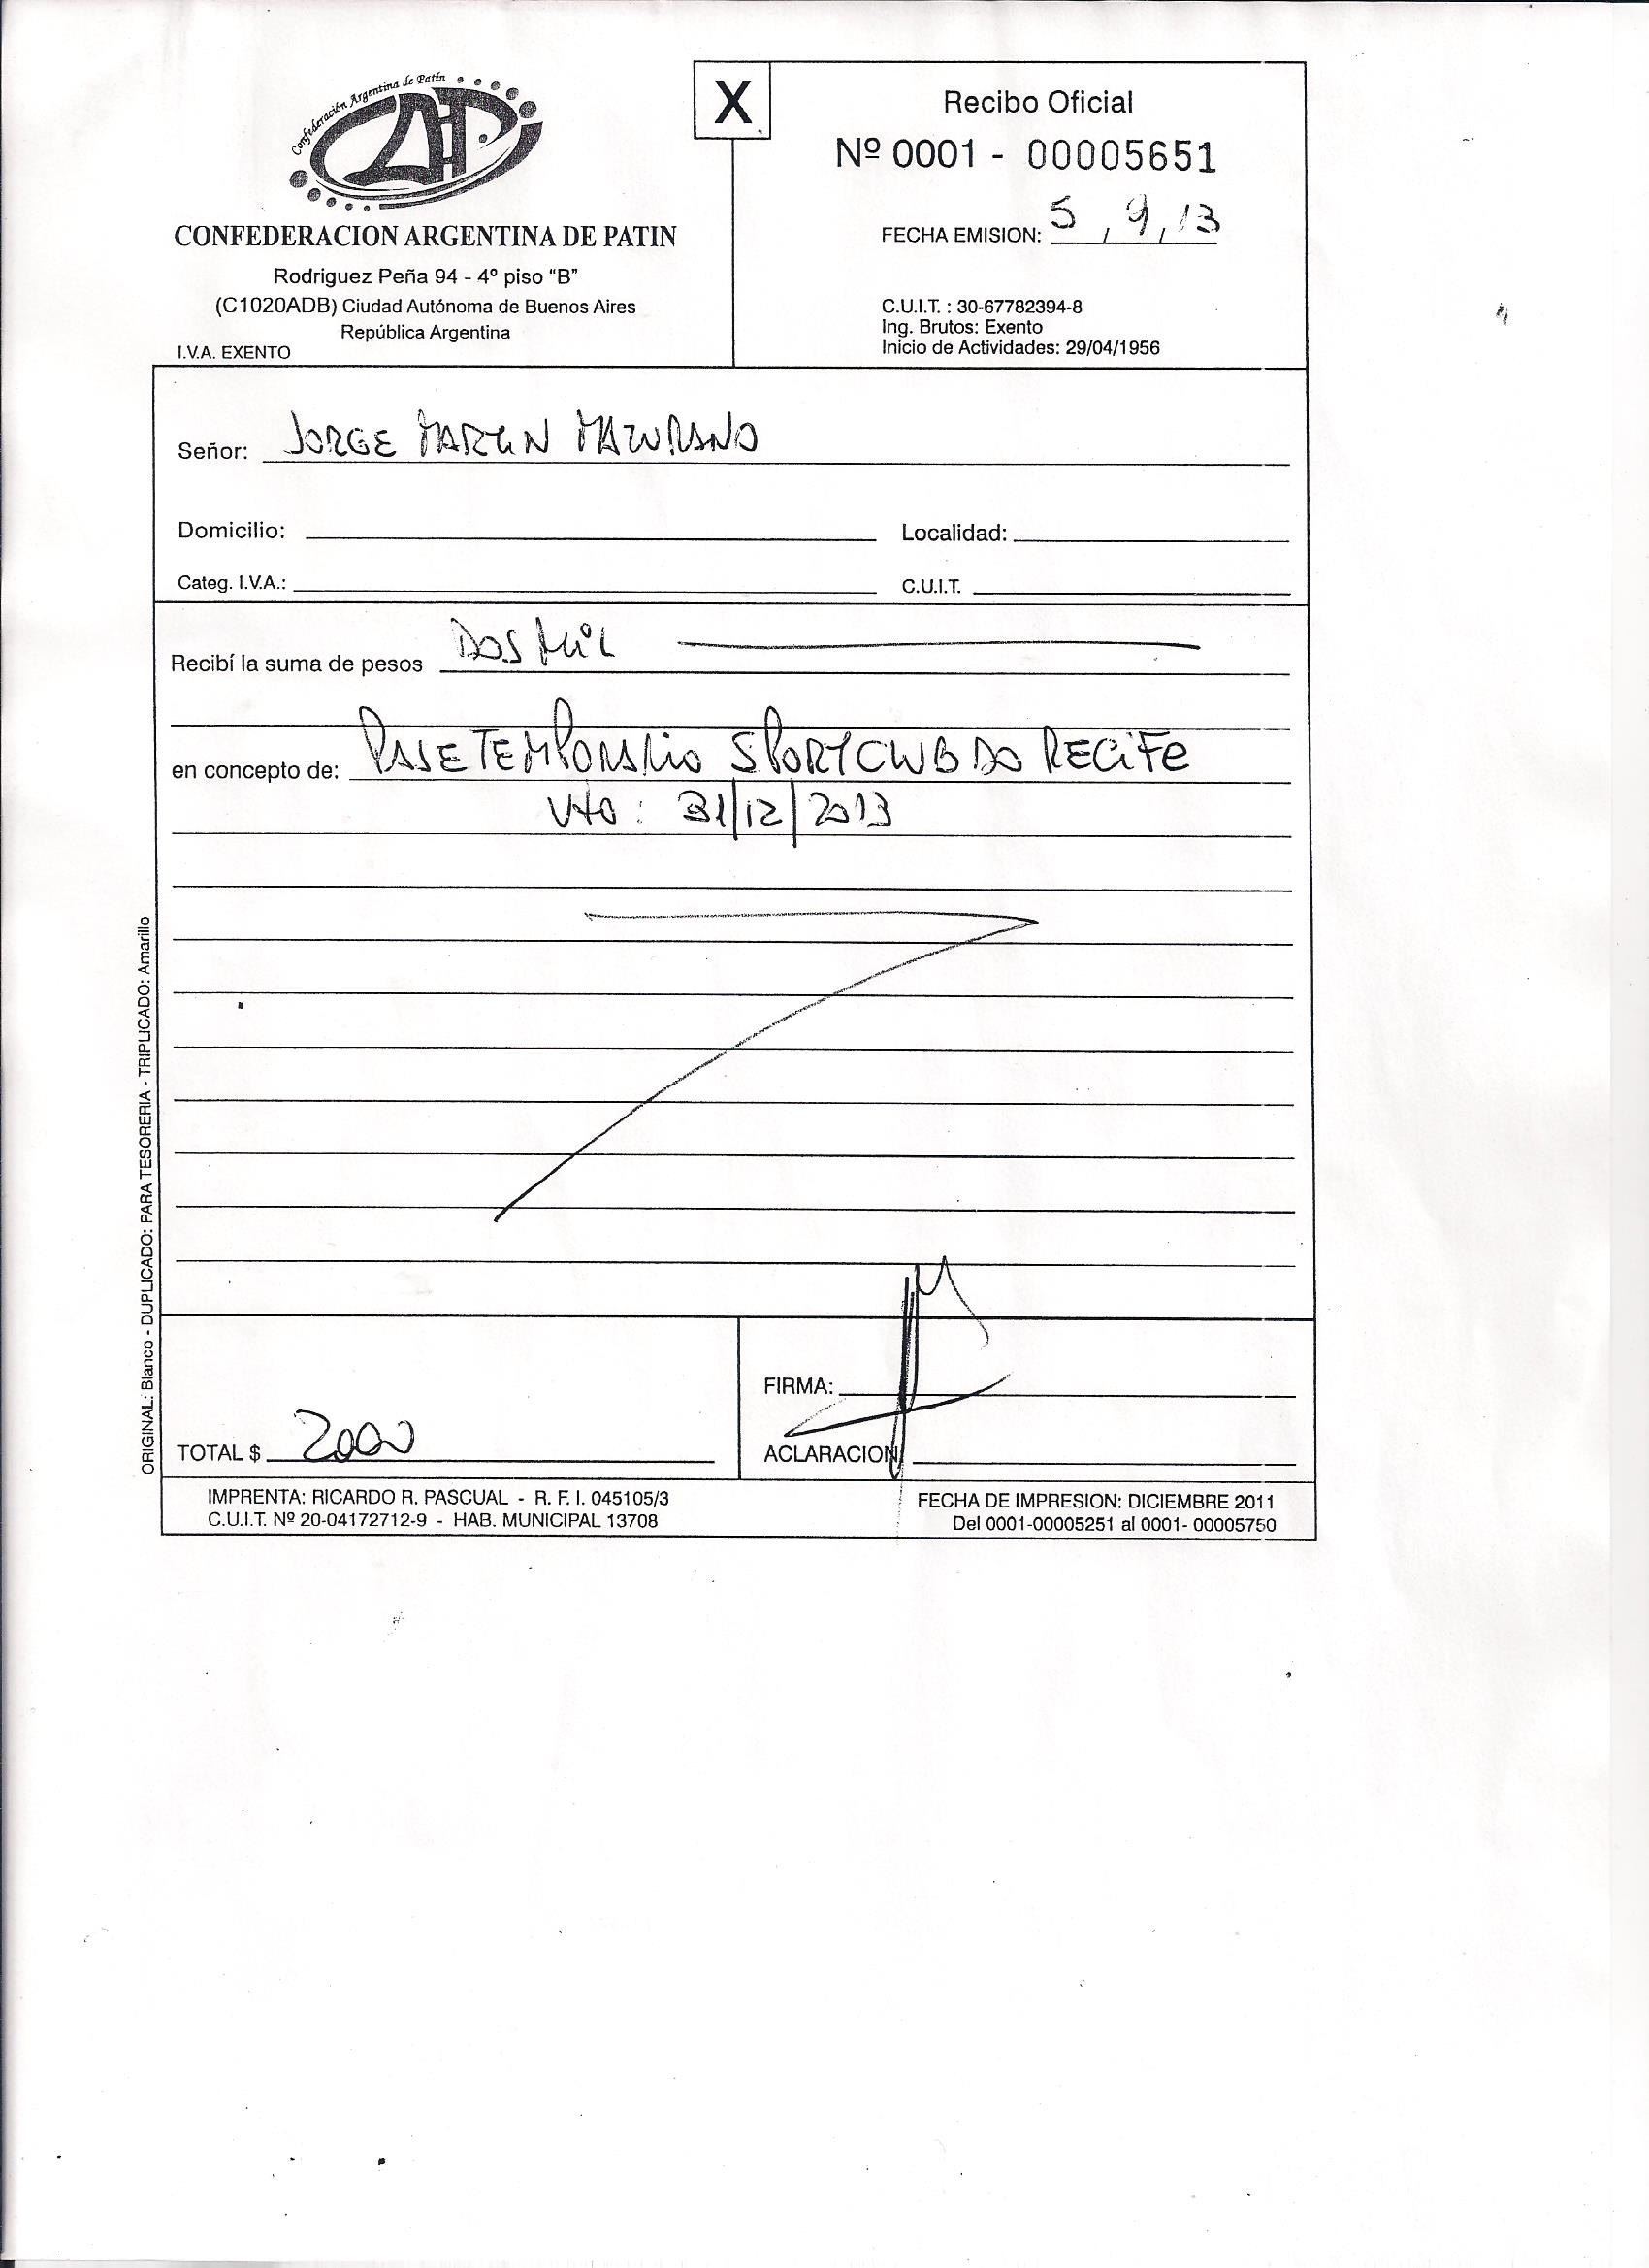 Confederación Argentina de Patín
CAP
CONFEDERACION ARGENTINA DE PATIN
Rodriguez Peña 94 - 4º piso "B"
(C1020ADB) Ciudad Autónoma de Buenos Aires
República Argentina
I.V.A. EXENTO
X
Recibo Oficial
Nº 0001 - 00005651
FECHA EMISION: 5 / 9 / 13
C.U.I.T. : 30-67782394-8
Ing. Brutos: Exento
Inicio de Actividades: 29/04/1956
Señor: JORGE MARTIN MATURANO
Domicilio:
Localidad:
Categ. I.V.A.:
C.U.I.T.
Recibí la suma de pesos DOS MiL
en concepto de: PASE TEMPORARIO SPORT CLUB DO RECiFE
Vto : 31/12/2013
TOTAL $ 2000
FIRMA:
ACLARACION
ORIGINAL: Blanco - DUPLICADO: PARA TESORERIA - TRIPLICADO: Amarillo
IMPRENTA: RICARDO R. PASCUAL - R. F. I. 045105/3
C.U.I.T. Nº 20-04172712-9 - HAB. MUNICIPAL 13708
FECHA DE IMPRESION: DICIEMBRE 2011
Del 0001-00005251 al 0001- 00005750